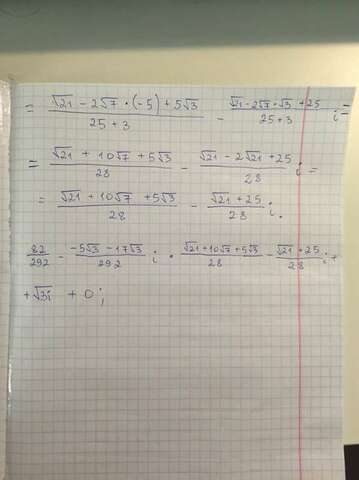 = (√21 − 2√7 · (−5) + 5√3)/(25 + 3) − (√21 − 2√7 · √3 + 25)/(25 + 3) i =
= (√21 + 10√7 + 5√3)/28 − (√21 − 2√21 + 25)/28 i =
= (√21 + 10√7 + 5√3)/28 − (√21 + 25)/28 i.
82/292 − (−5√3 − 17√3)/292 i · (√21 + 10√7 + 5√3)/28 − (√21 + 25)/28 i +
+ √3i + 0;